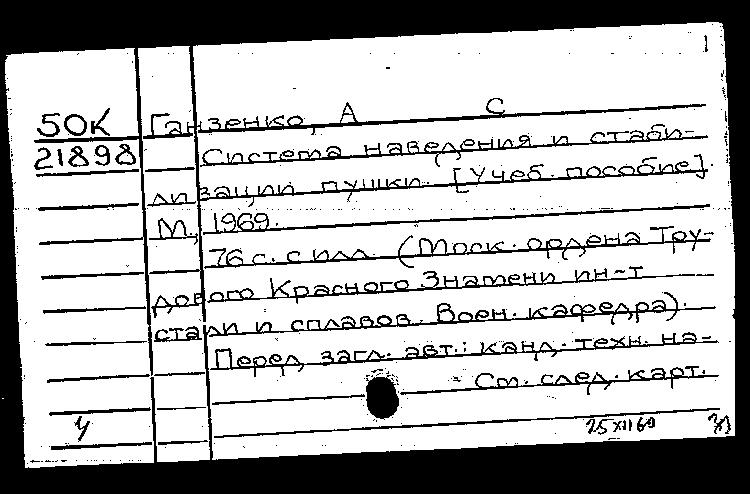 1
50К Ганзенко, А С
21898 Система наведения и стаби-
лизации пушки. [Учеб. пособие].
М., 1969.
76 с. с илл. (Моск. ордена Тру-
дового Красного Знамени ин-т
стали и сплавов. Воен. кафедра).
Перед загл. авт.: канд. техн. на-
См. след. карт.
У 25 XII 69